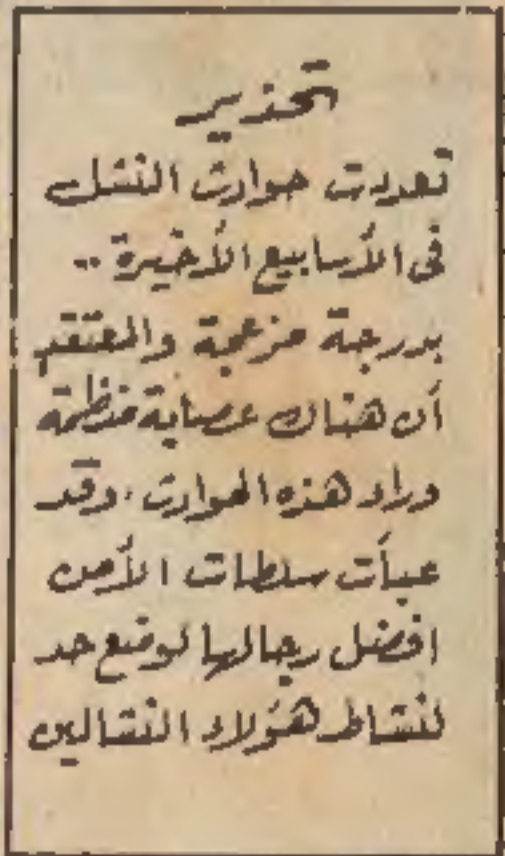 تحذير
تعددت حوادث النشل
فى الأسابيع الأخيرة ..
بدرجة مزعجة والمعتقد
أن هناك عصابة منظمة
وراء هذه الحوادث . وقد
عبأت سلطات الأمن
افضل رجالها لوضع حد
لنشاط هؤلاء النشالين